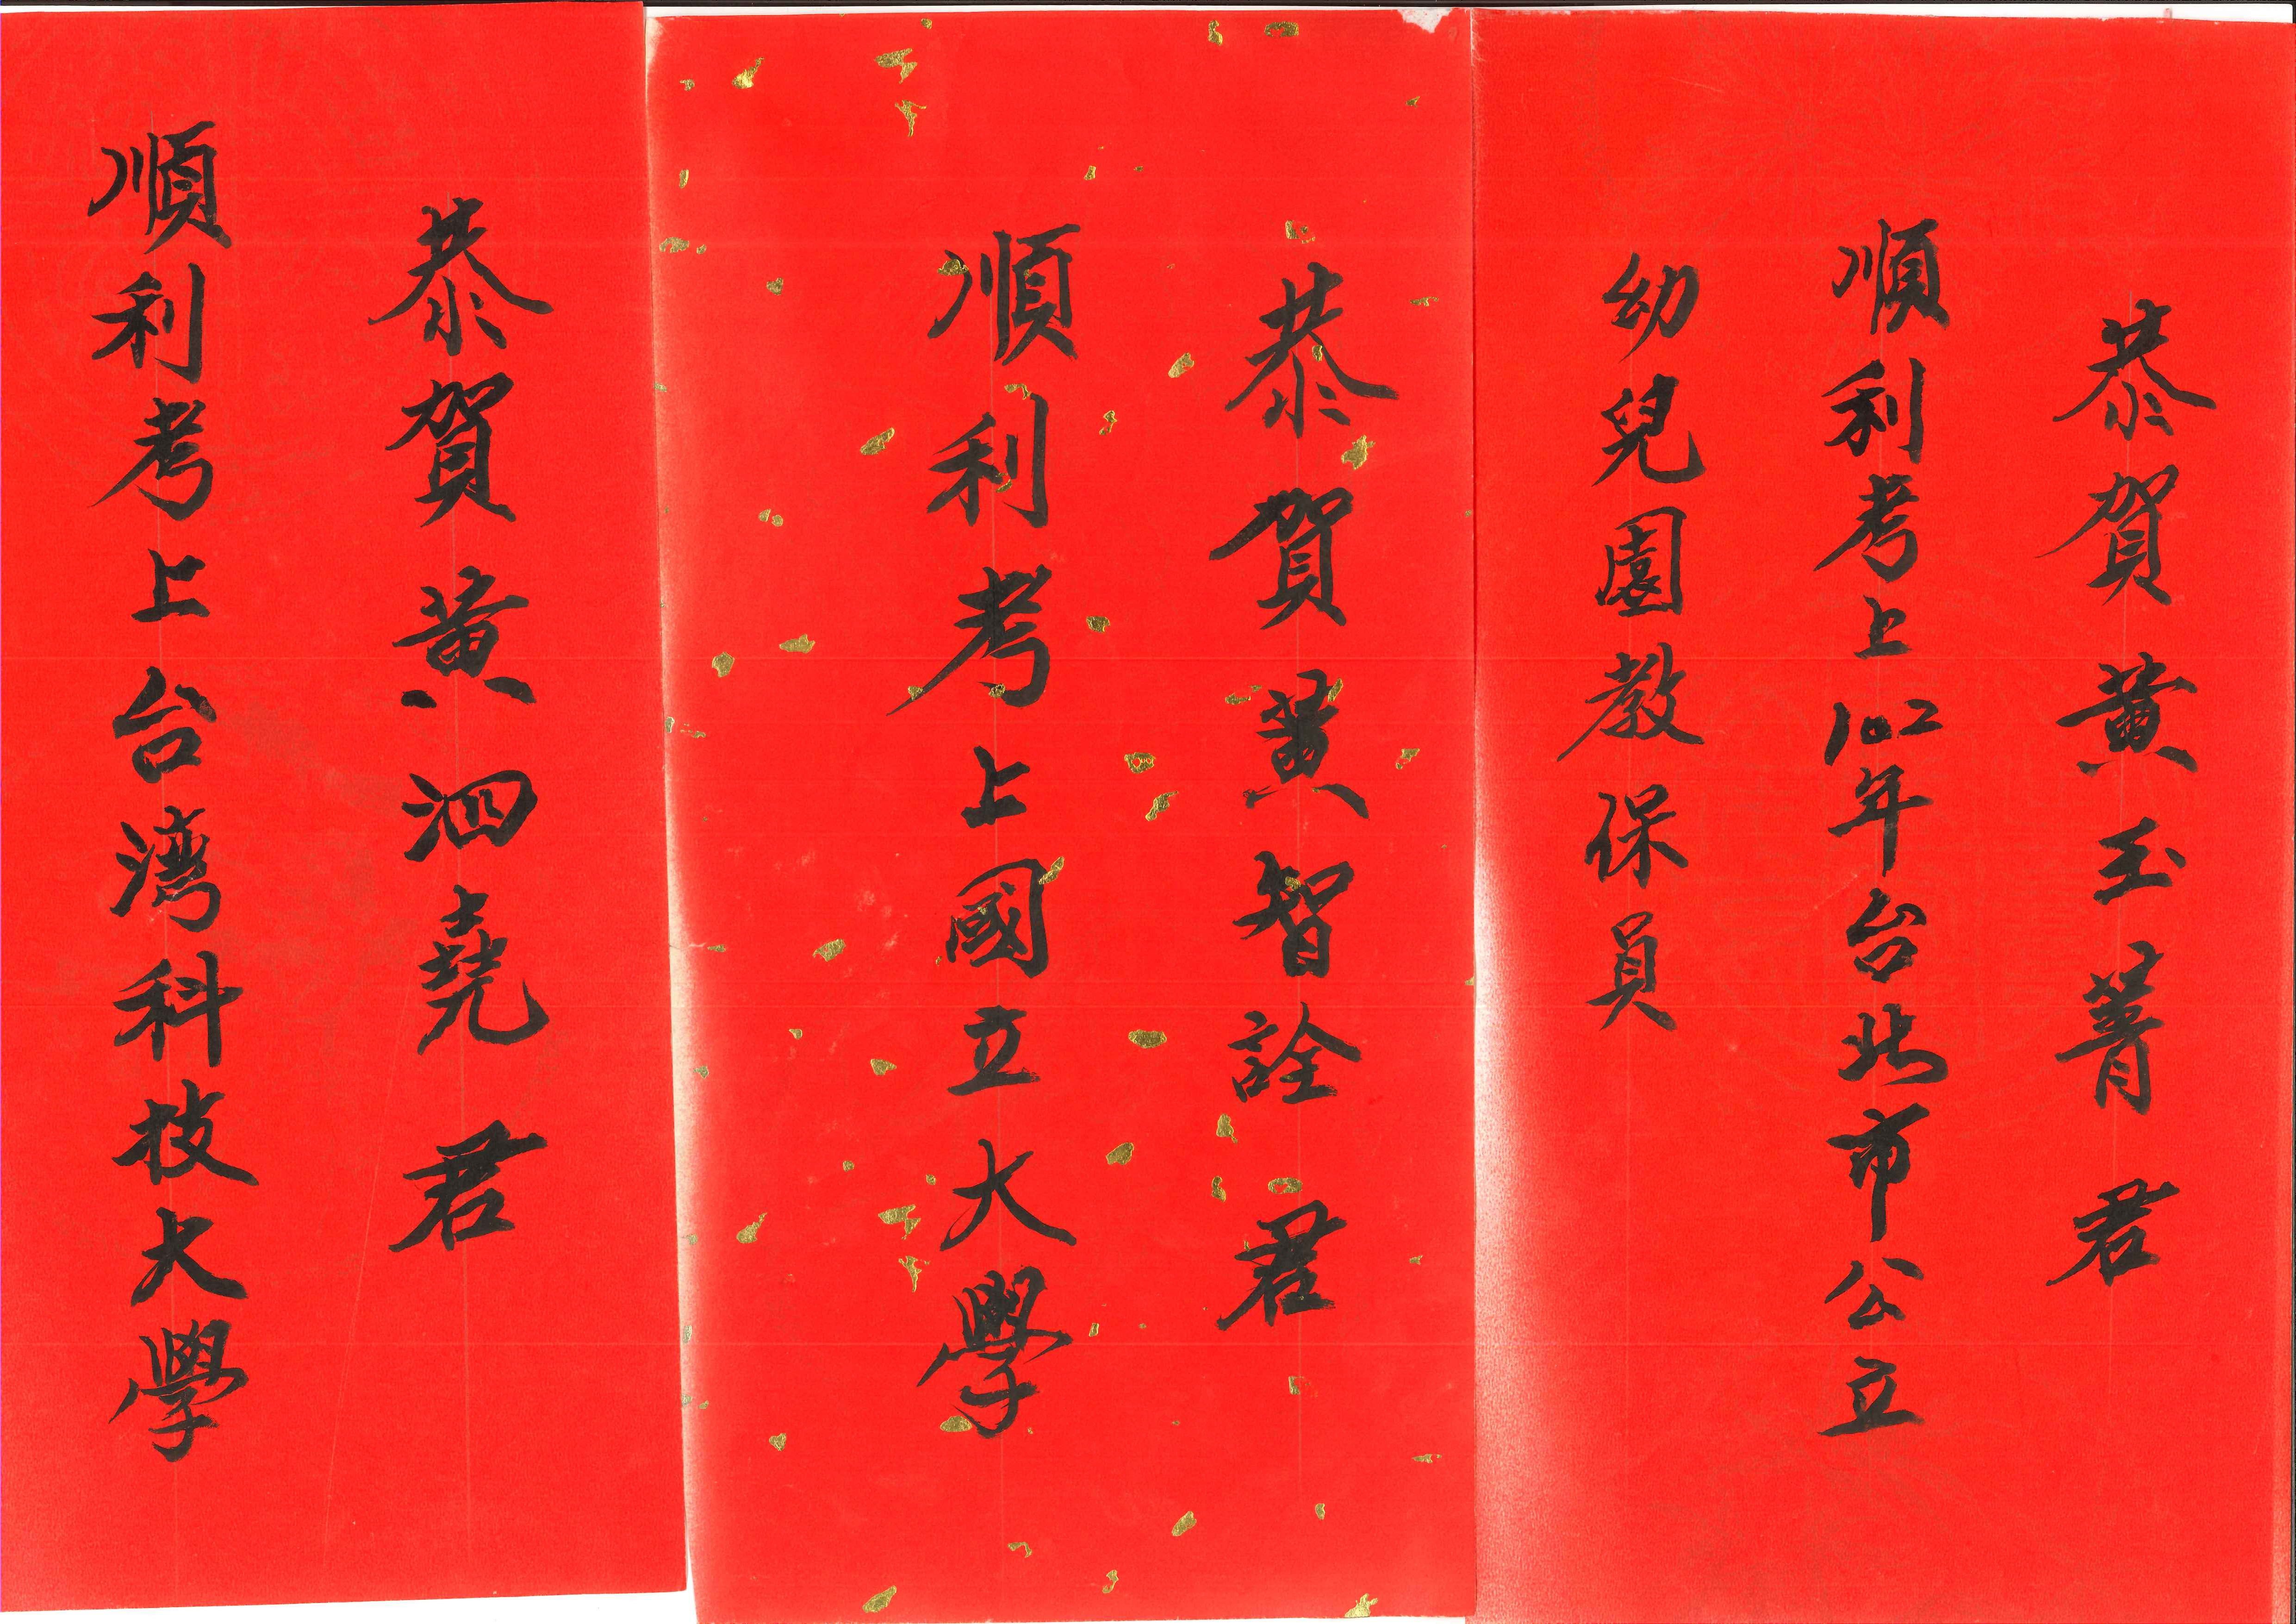 恭賀黃玉菁君
順利考上102年台北市公立
幼兒園教保員
恭賀黃智詮君
順利考上國立大學
恭賀黃泗堯君
順利考上台湾科技大學